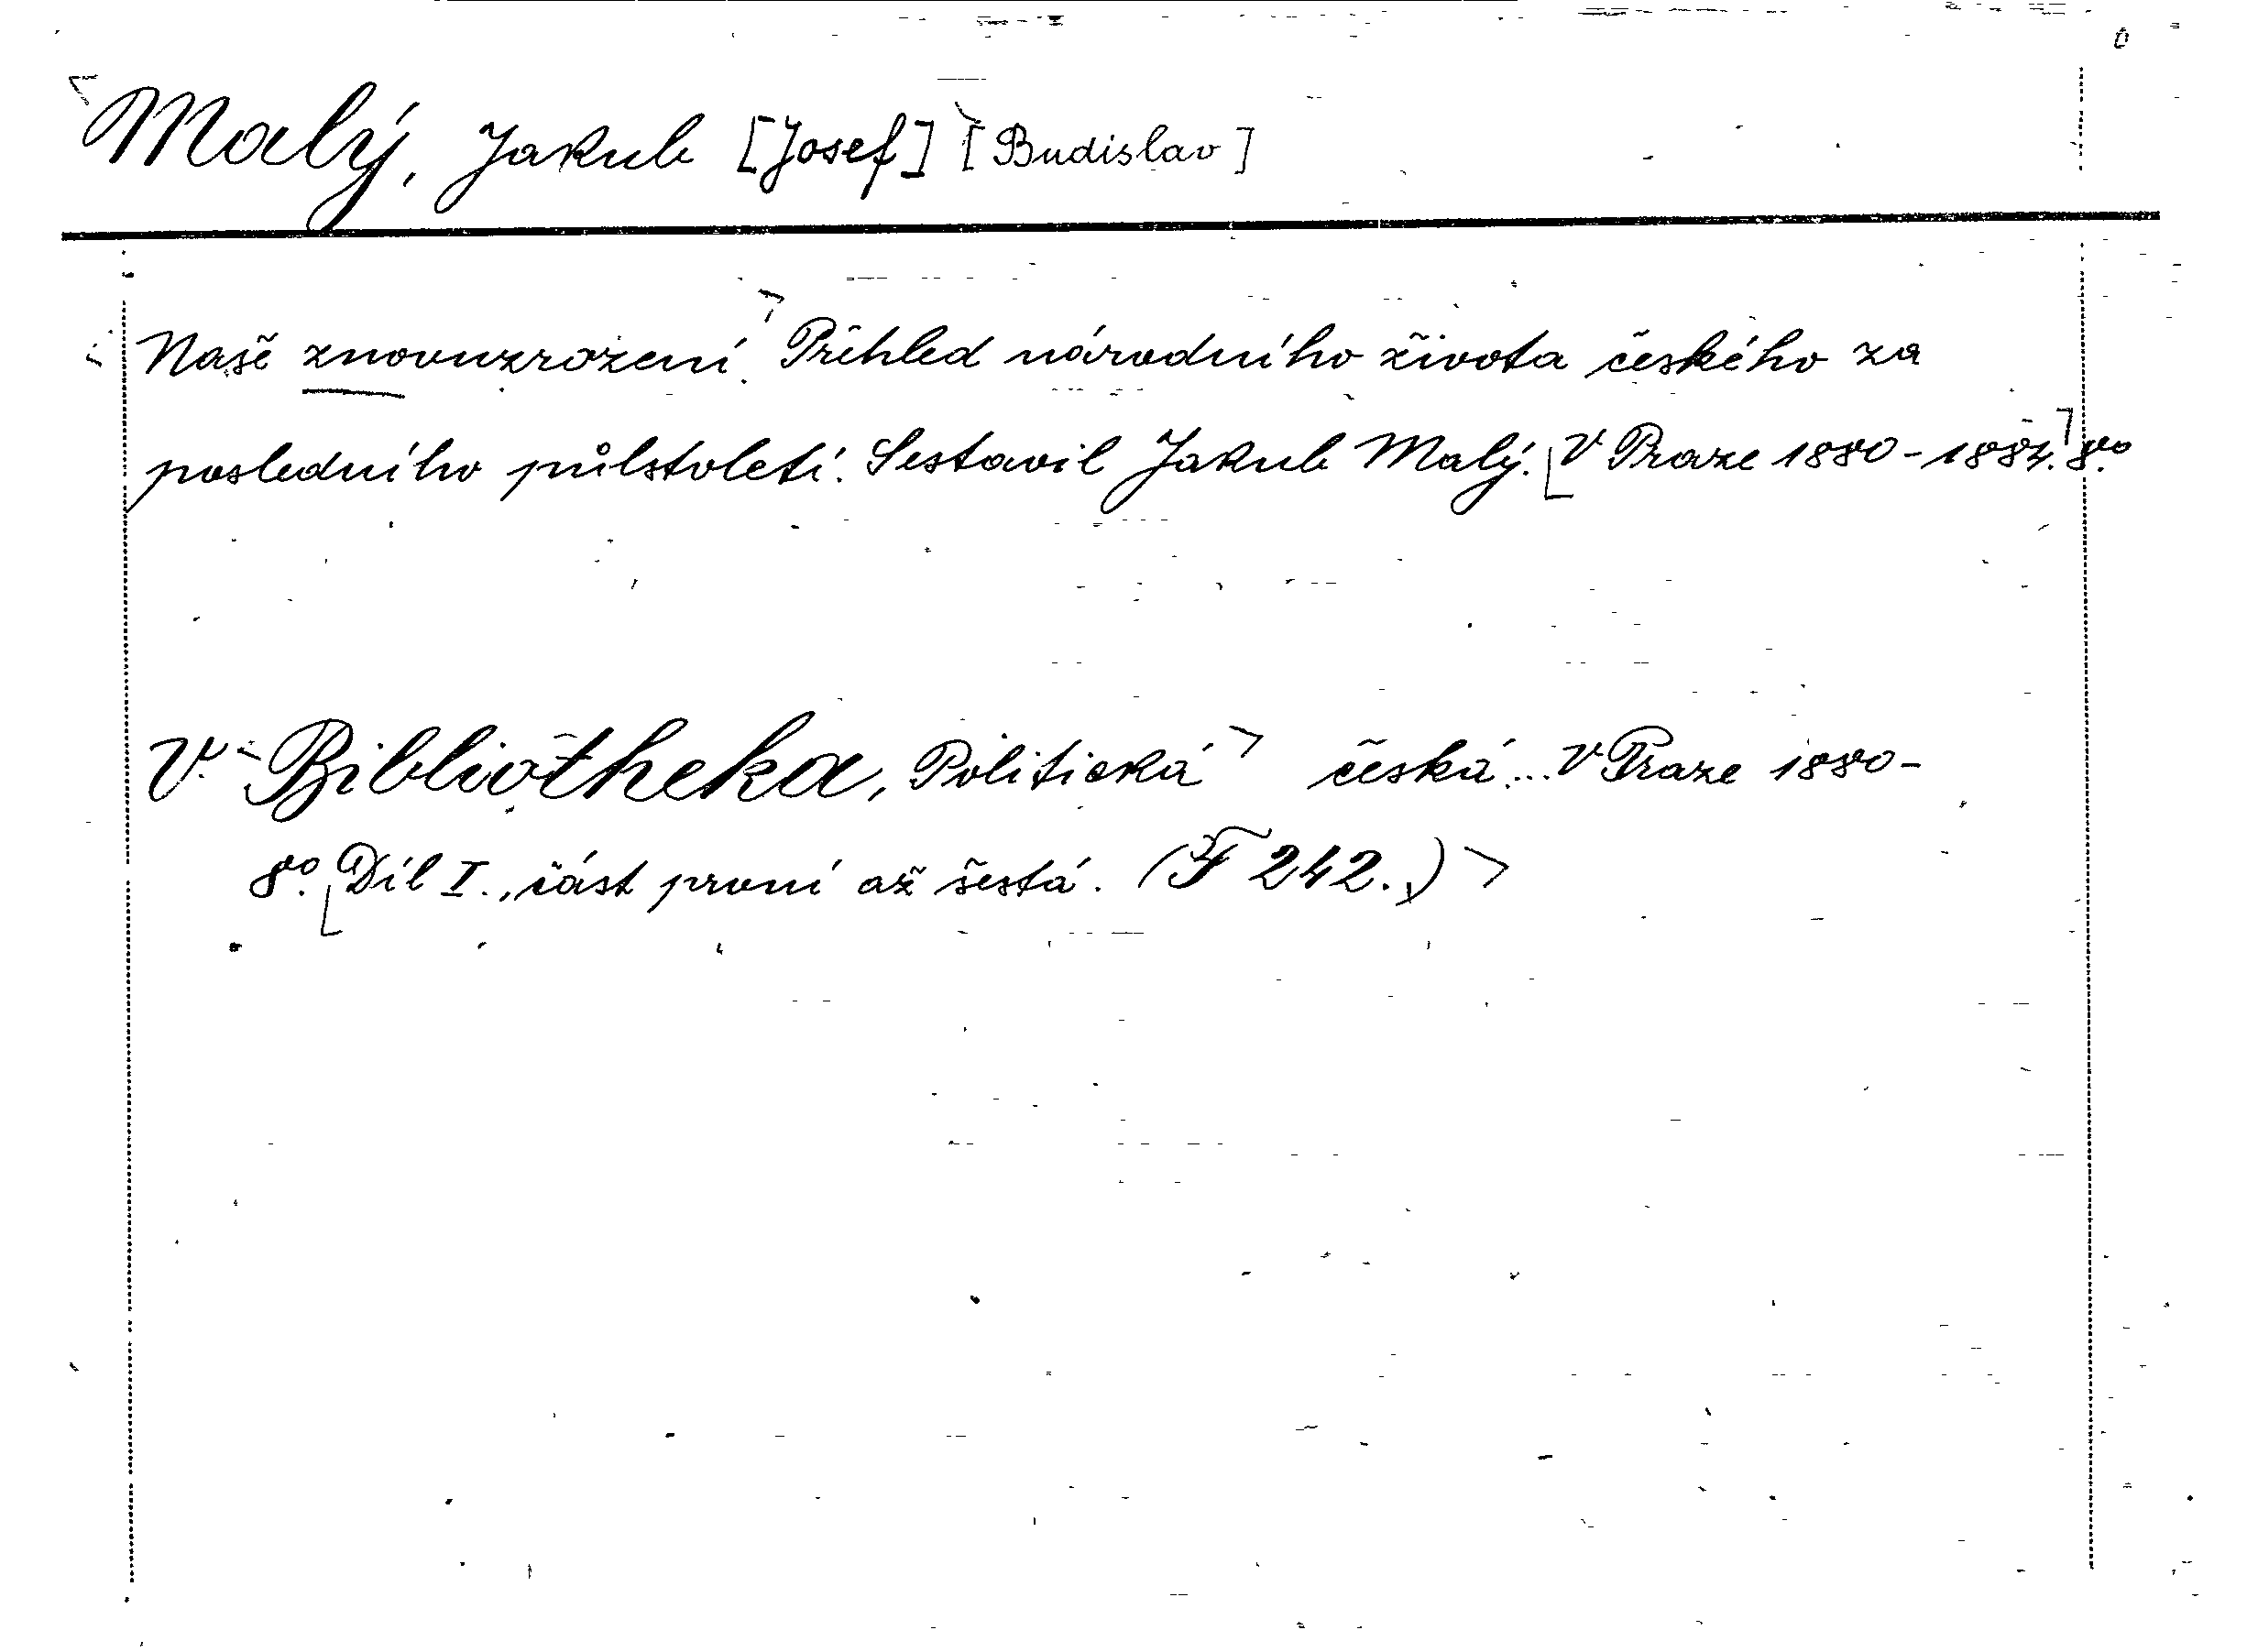 Malý, Jakub [Josef] [Budislav]
Naše znovuzrození. Přehled národního života českého za
posledního půlstoletí. Sestavil Jakub Malý. V Praze 1880-1884. 8º.
V. Bibliotheka, Politická česká... V Praze 1880-
8º. Díl I., část první až šestá. (F 242.)